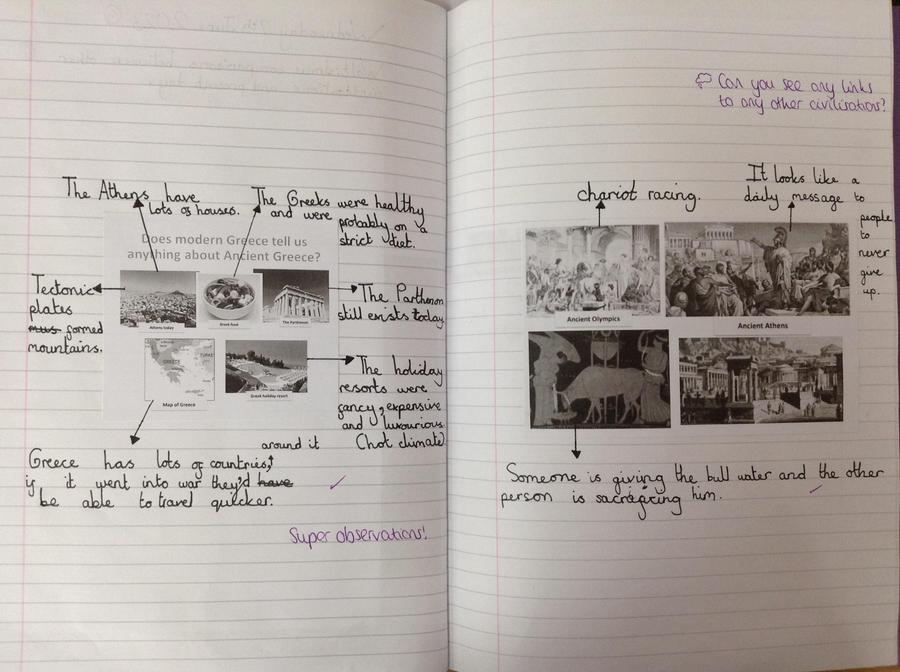 The Athens have
lots of houses.
The Greeks were healthy
and were probably on a
strict diet.
Does modern Greece tell us
anything about Ancient Greece?
Tectonic
plates
formed
mountains.
Athens today
Greek food
The Parthenon
The Parthenon
still exists today
Map of Greece
GREECE
Greek holiday resort
The holiday
resorts were
fancy, expensive
and luxurious.
(hot climate)
around it
Greece has lots of countries,
if it went into war they'd have
be able to travel quicker.
Super observations!
Can you see any links
to any other civilisations?
chariot racing.
It looks like a
daily message to
people
to
never
give
up.
Ancient Olympics
Ancient Athens
Someone is giving the bull water and the other
person is sacrificing him.